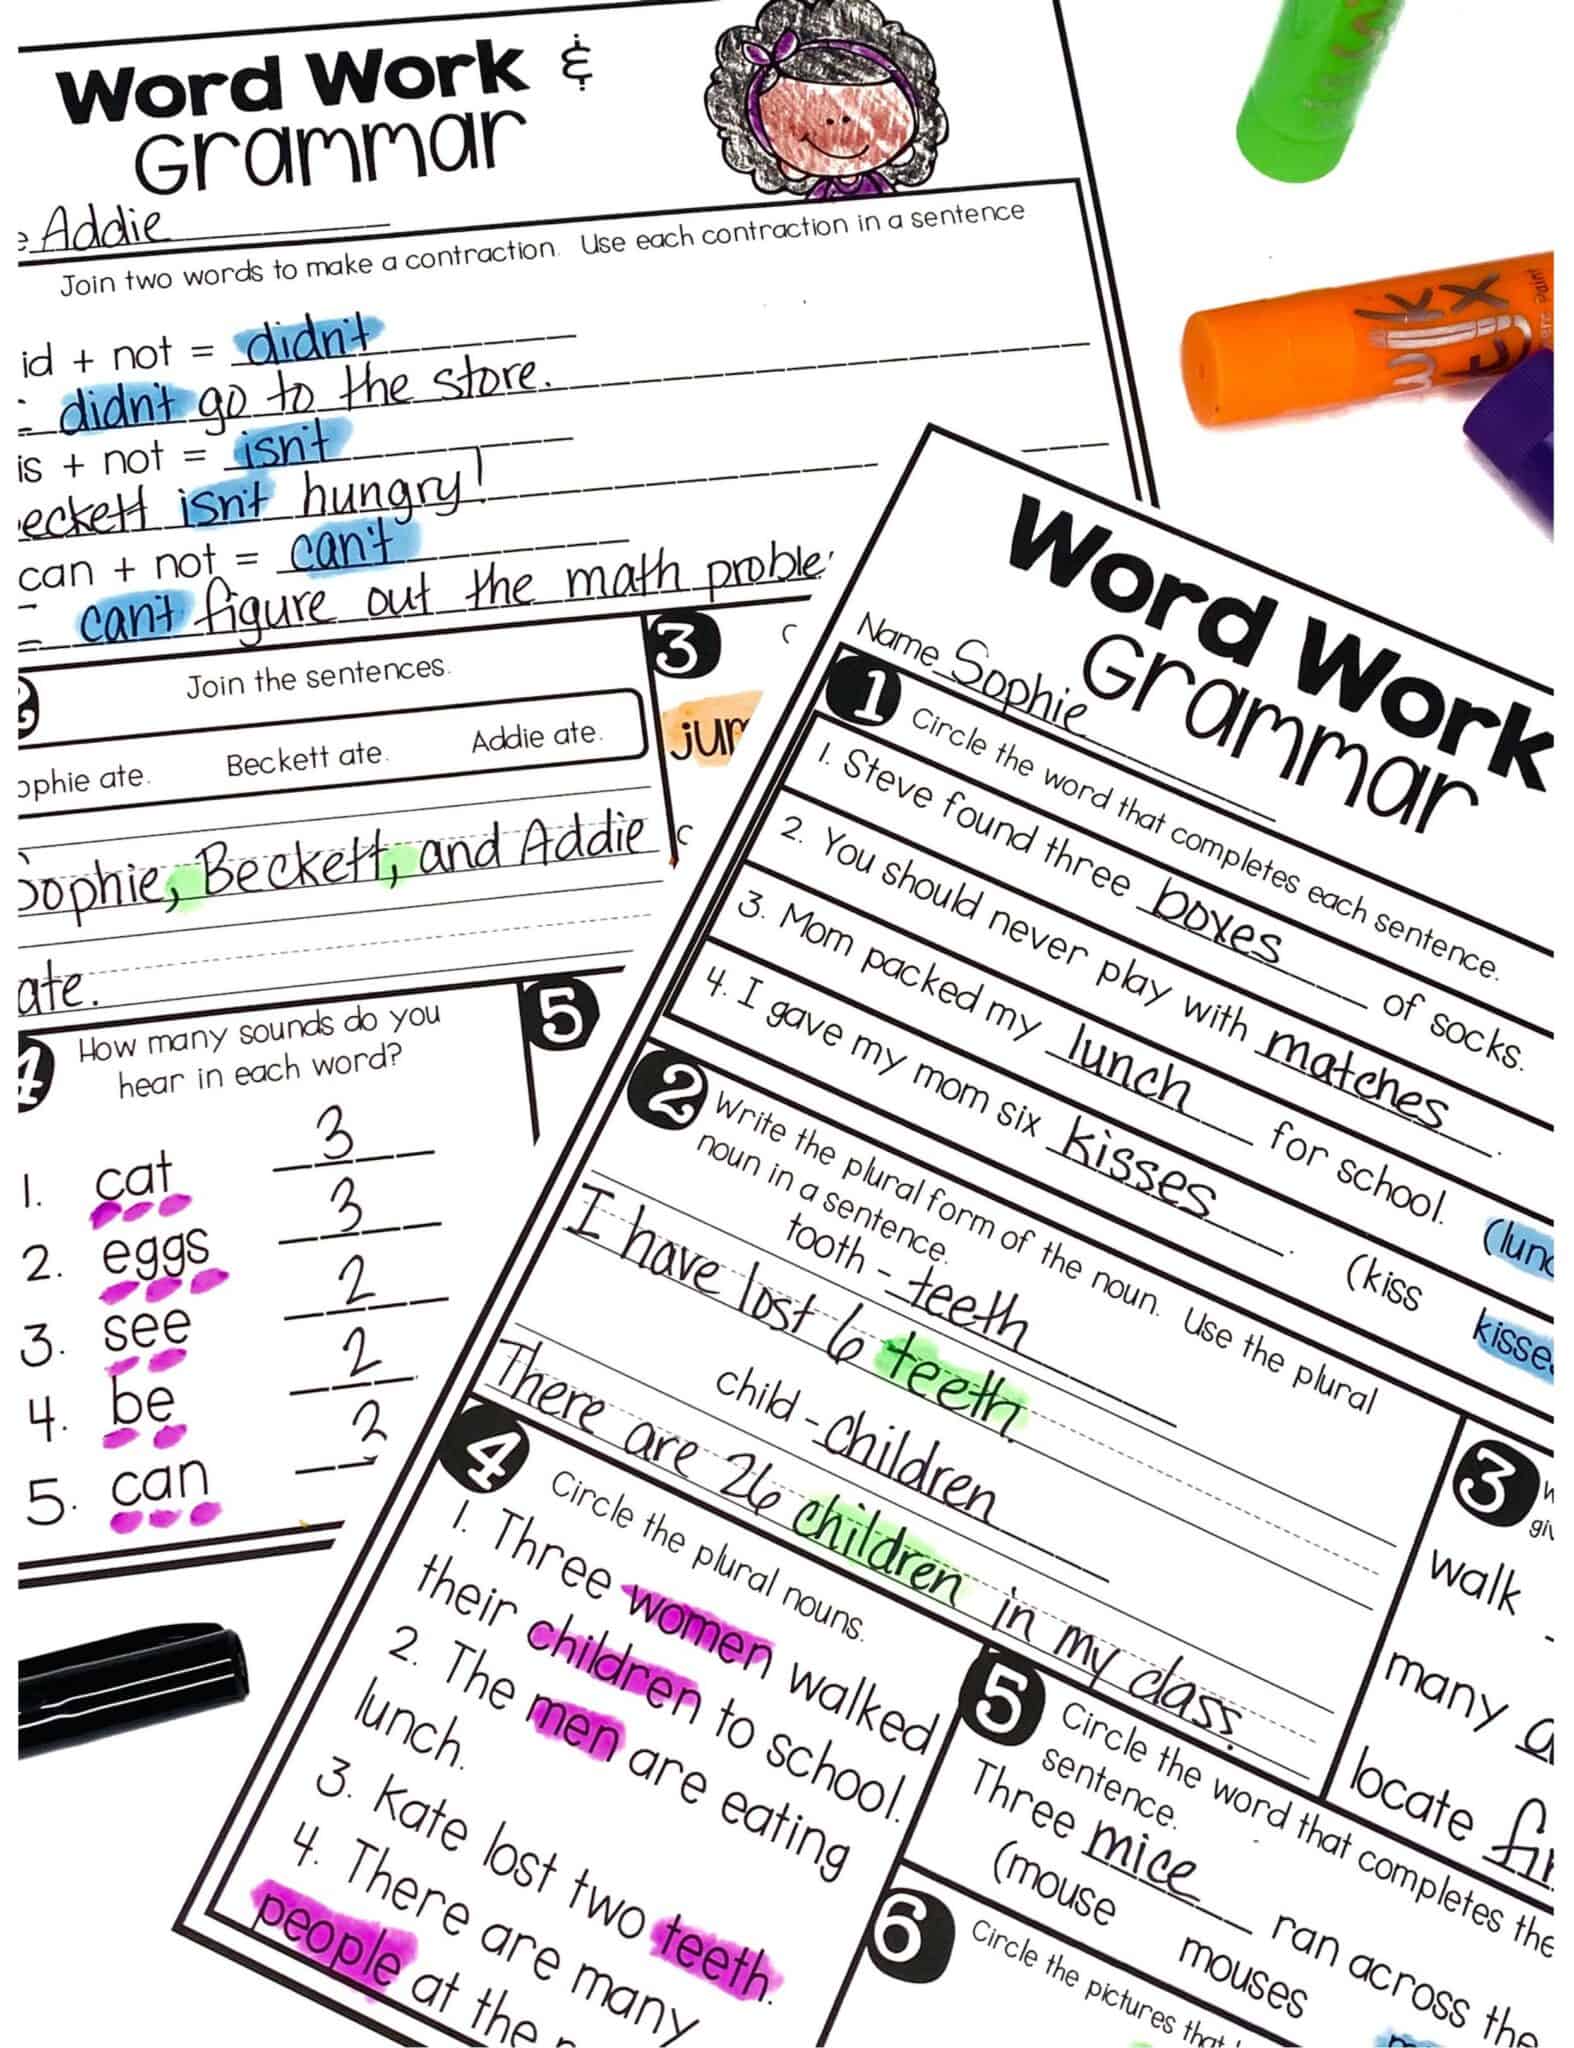 Word Work &
Grammar
Addie
Join two words to make a contraction. Use each contraction in a sentence
id + not = didn't
didn't go to the store.
is + not = isn't
eckett isn't hungry!
can + not = can't
can't figure out the math proble
Join the sentences.
3
ophie ate. Beckett ate. Addie ate.
jum
Sophie, Beckett, and Addie
ate.
4 How many sounds do you
hear in each word?
5
1. cat 3
2. eggs 3
3. see 2
4. be 2
5. can 2
Word Work
Grammar
Name Sophie
1 Circle the word that completes each sentence.
1. Steve found three boxes of socks.
2. You should never play with matches.
3. Mom packed my lunch for school. (lunc
4. I gave my mom six kisses. (kiss kisses
2 Write the plural form of the noun. Use the plural
noun in a sentence.
tooth - teeth
I have lost 6 teeth.
child - children
There are 26 children in my class.
3
giv
walk
many a
locate fi
4 Circle the plural nouns.
1. Three women walked
their children to school.
2. The men are eating
lunch.
3. Kate lost two teeth.
4. There are many
people at the
5 Circle the word that completes the
sentence.
Three mice ran across the
(mouse mouses
6 Circle the pictures that